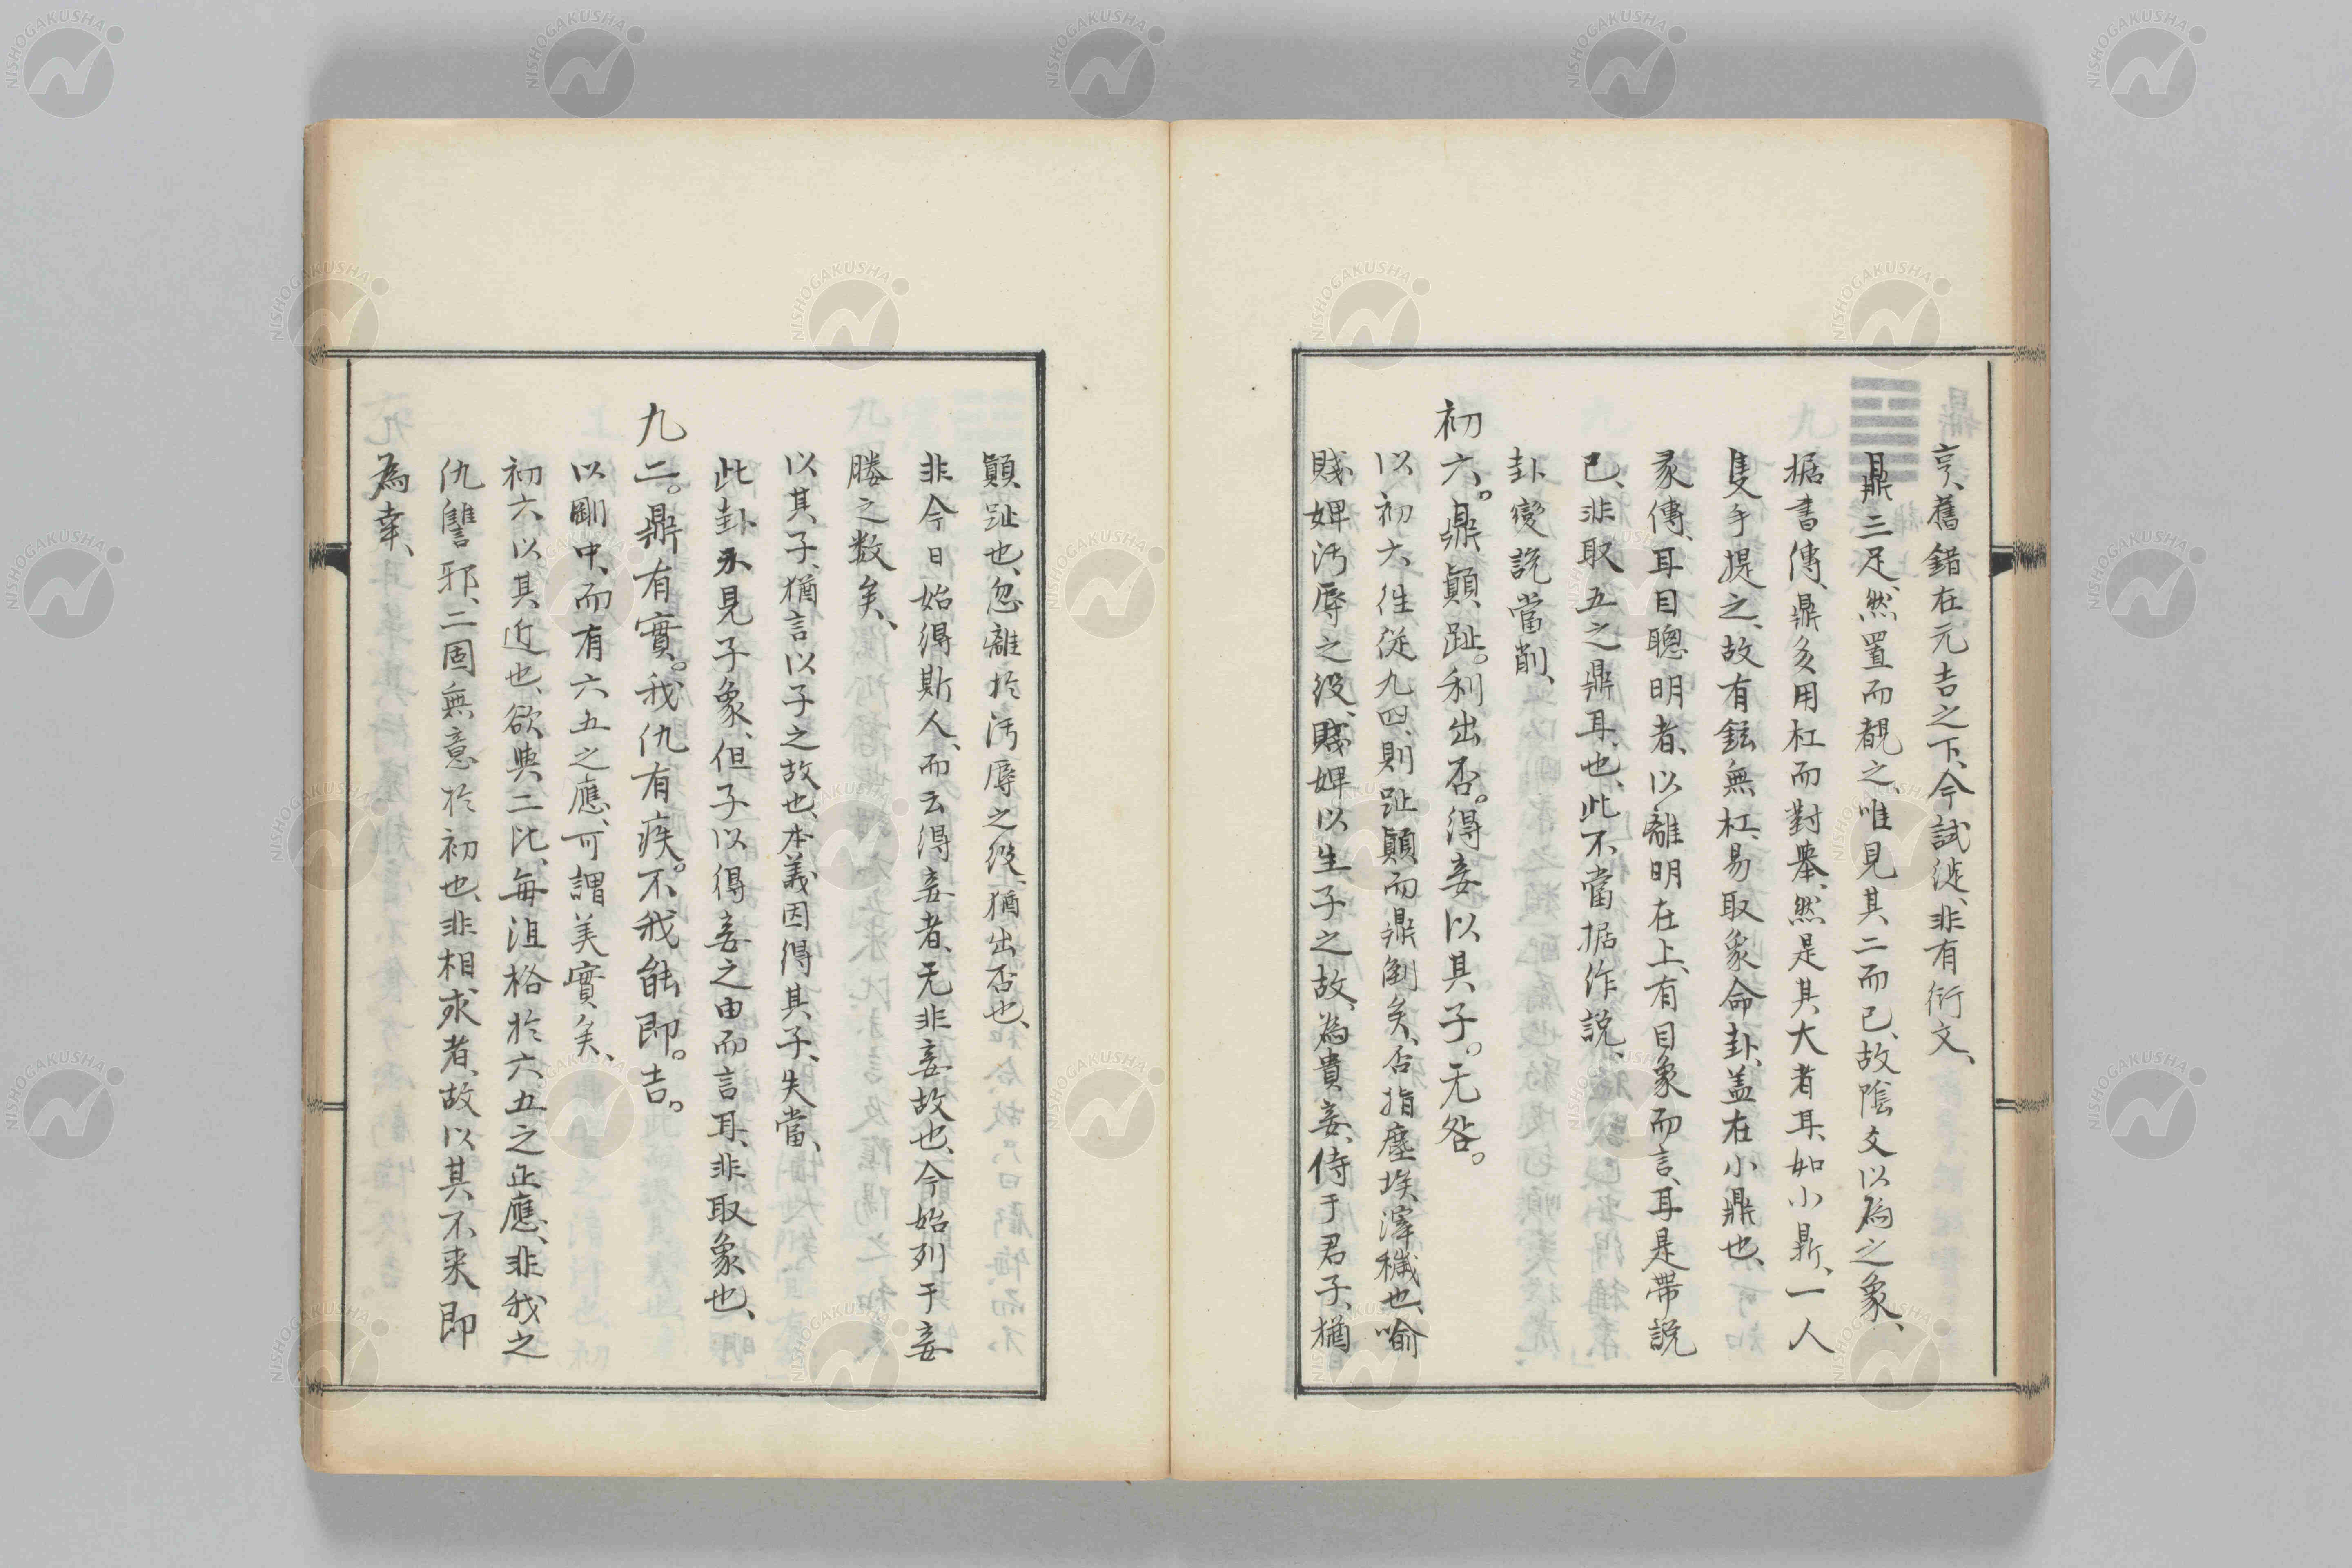 亨、舊錯在元吉之下、今試從、非有衍文、
鼎三足、然置而觀之、唯見其二而已、故陰文以為之象、
据書傳、鼎亥用杠而對舉、然是其大者耳、如小鼎、一人
隻手提之、故有鉉無杠、易取象命卦、盖在小鼎也、
彖傳、耳目聰明者、以離明在上、有目象而言、耳是帶說
已、非取五之鼎耳、也、此不當据作說、
卦變說當削、
初六。鼎顛趾。利出否。得妾以其子。无咎。
以初六往從九四、則趾顛而鼎倒矣、否指塵埃滓穢也、喻
賤婢汚辱之役、賤婢以生子之故、為貴妾、侍于君子、猶
顛趾也、忽離於汚辱之役、猶出否也、
非今日始得斯人、而云得妾者、无非妾故也、今始列于妾
媵之数矣、
以其子、猶言以子之故也、本義因得其子、失當、
此卦不見子象、但子以得妾之由而言耳、非取象也、
九二。鼎有實。我仇有疾。不我能即。吉。
以剛中、而有六五之應、可謂美實矣、
初六以其近也、欲與二比、每沮格於六五之正應、非我之
仇讐邪、二固無意於初也、非相求者、故以其不来即
為幸、
NISHOGAKUSHA